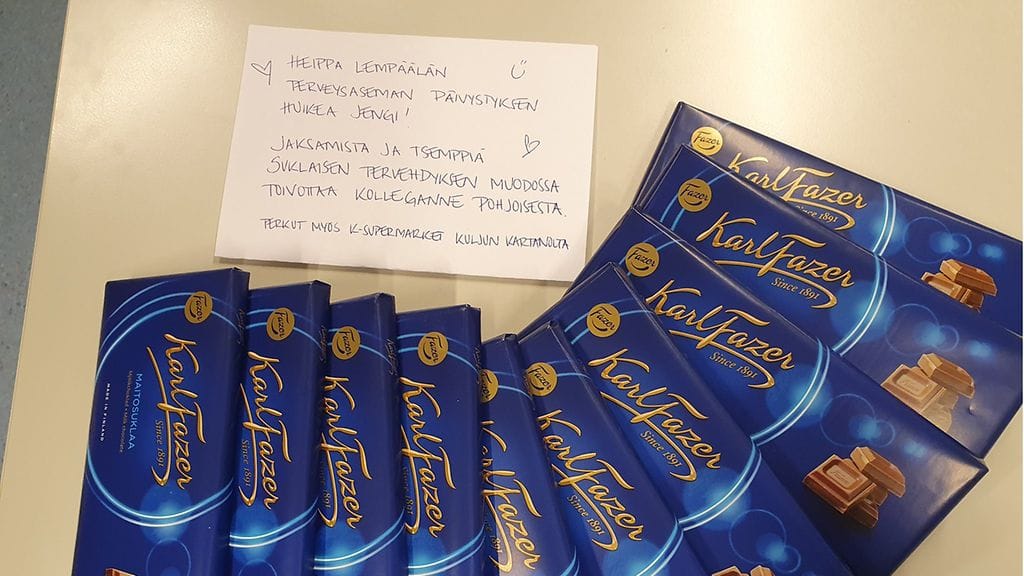 HEIPPA LEMPÄÄLÄN
TERVEYSASEMAN PÄIVYSTYKSEN
HUIKEA JENGI!
JAKSAMISTA JA TSEMPPIÄ
SUKLAISEN TERVEHDYKSEN MUODOSSA
TOIVOTTAA KOLLEGANNE POHJOISESTA.
TERKUT MYÖS K-SUPERMARKET KULJUN KARTANOLTA
Fazer
KarlFazer
Since 1891
MAITOSUKLAA
MADE IN FINLAND
Fazer
KarlFazer
Since 1891
Fazer
KarlFazer
Since 1891
Fazer
KarlFazer
Since 1891
Fazer
KarlFazer
Since 1891
Fazer
KarlFazer
Since 1891
Fazer
KarlFazer
Since 1891
Fazer
KarlFazer
Since 1891
Fazer
KarlFazer
Since 1891
Fazer
KarlFazer
Since 1891